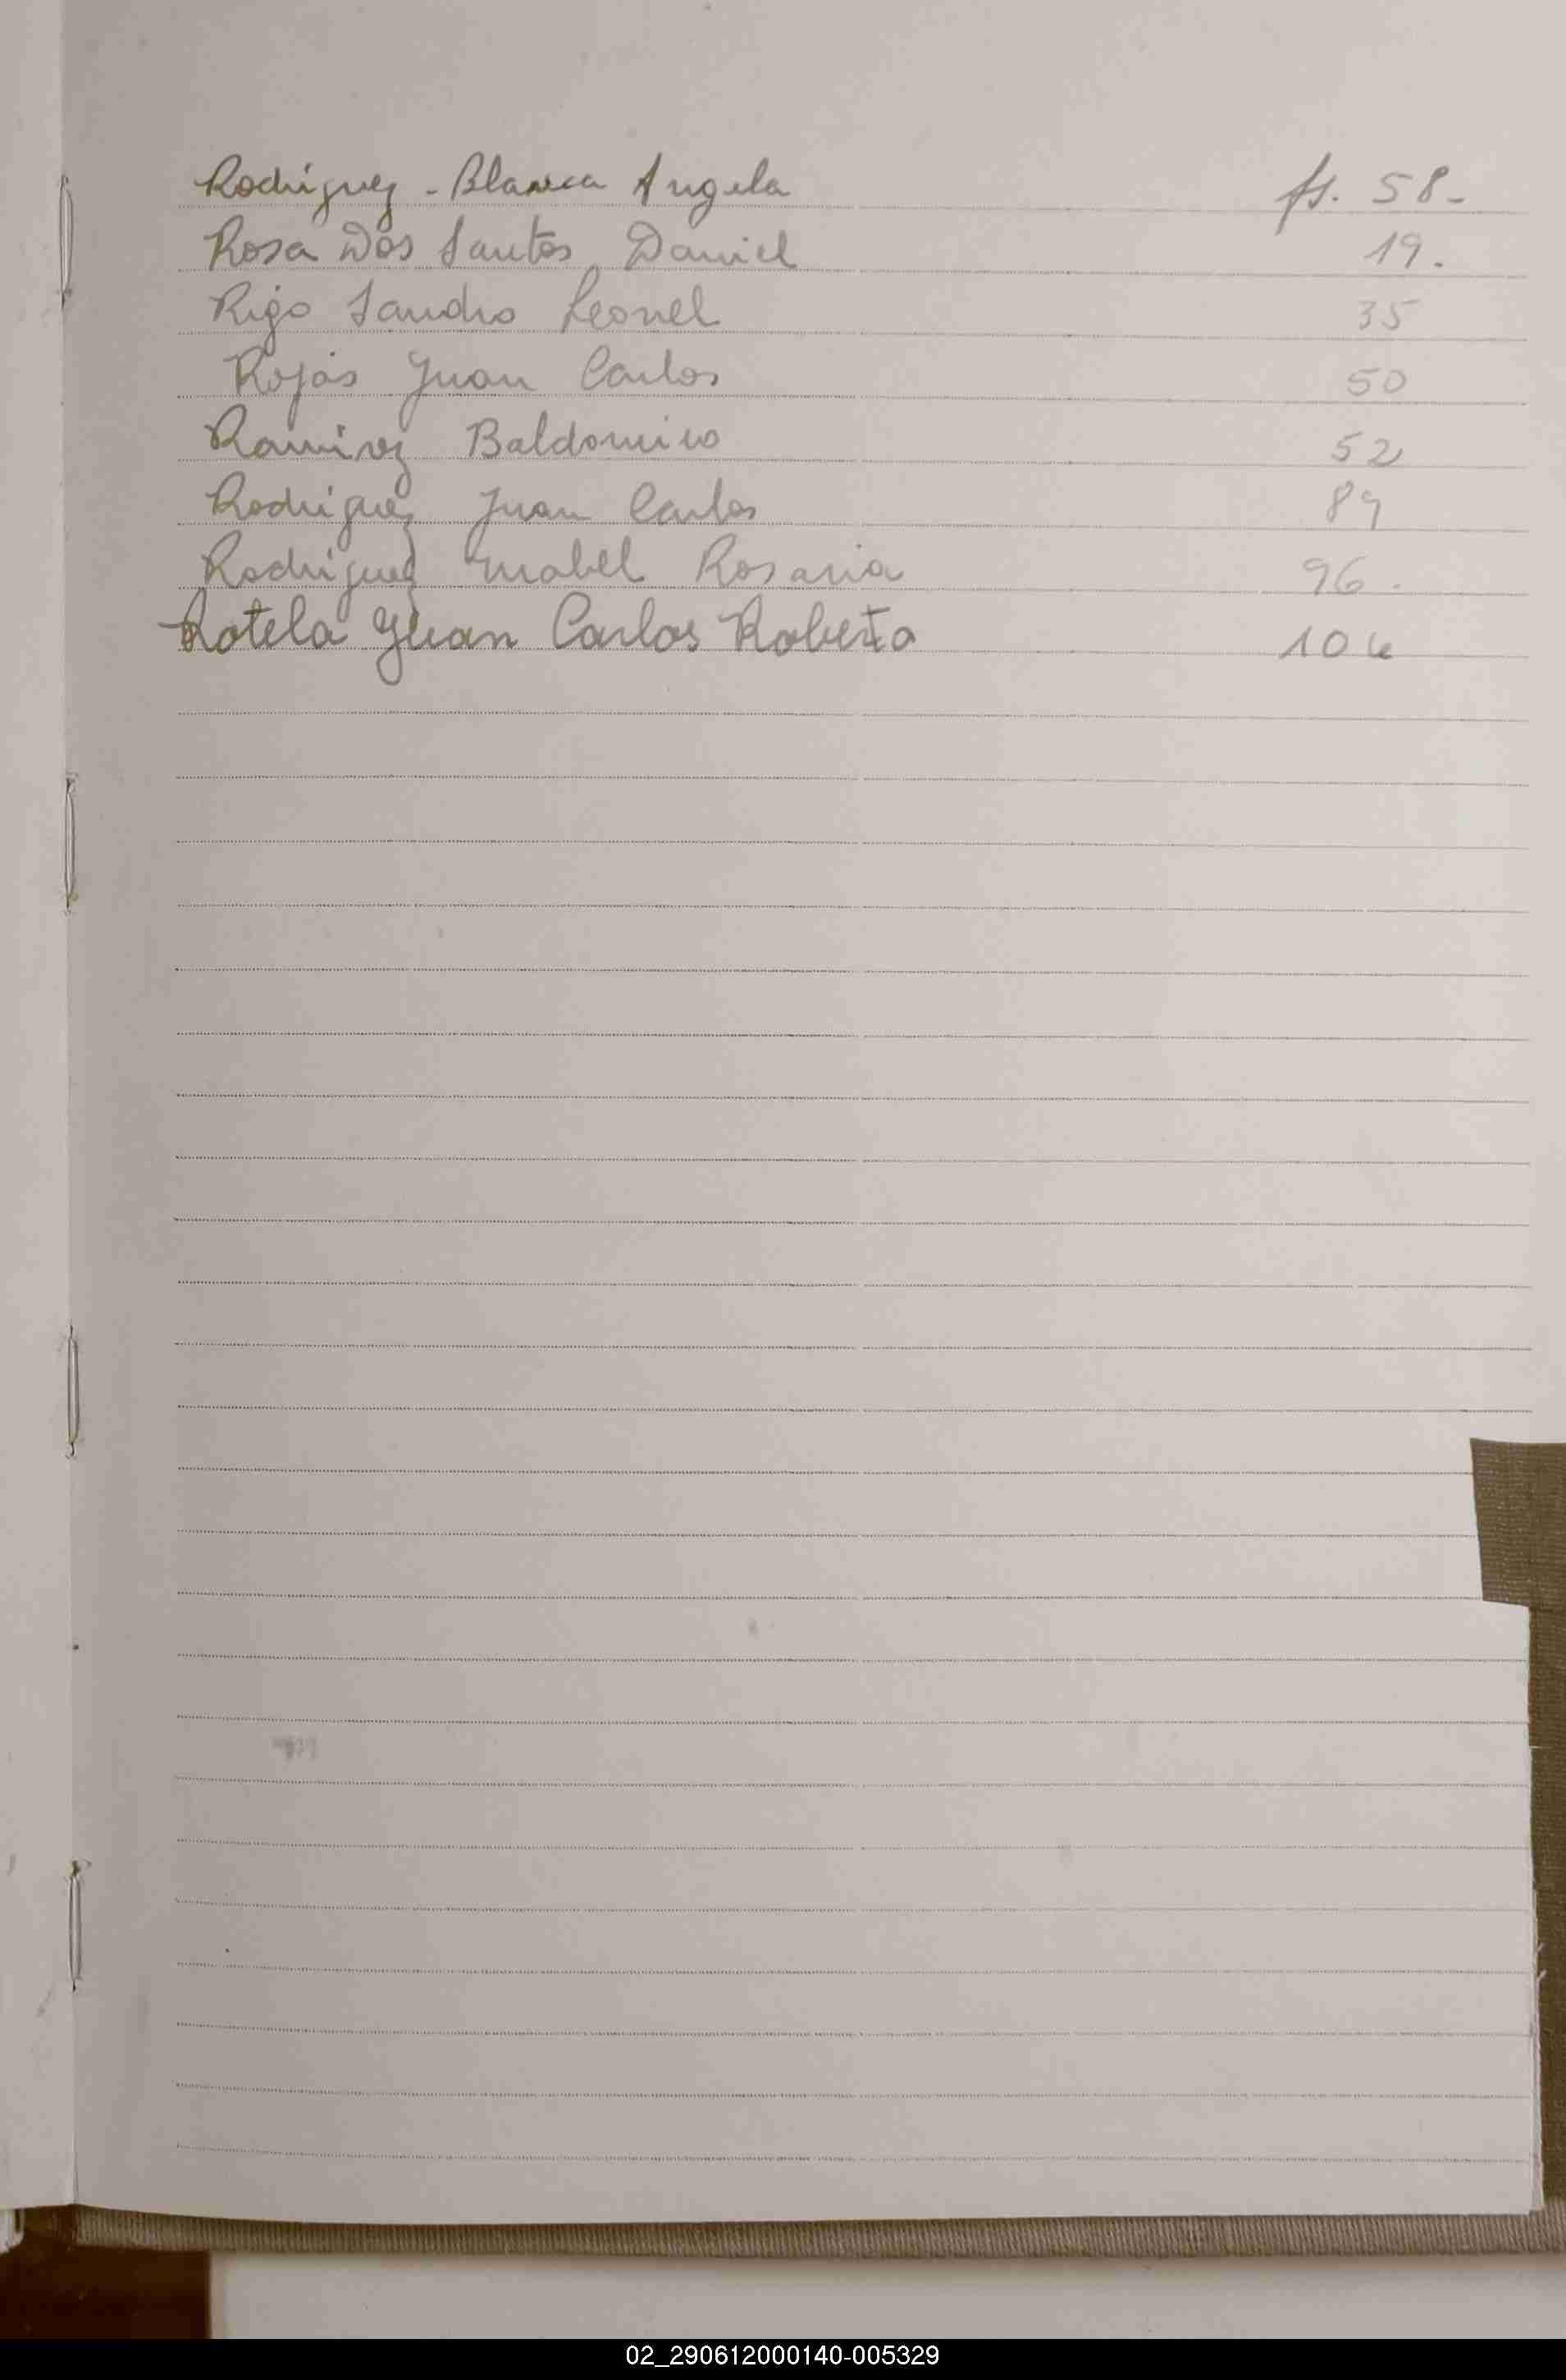 Rodriguez - Blanca Angela fs. 58-
Rosa Dos Santos Daniel 19.
Rigo Sandro Leonel 35
Rojas Juan Carlos 50
Ramirez Baldomero 52
Rodriguez Juan Carlos 89
Rodriguez Mabel Rosaria 96.
Rotela Juan Carlos Roberto
02_290612000140-005329